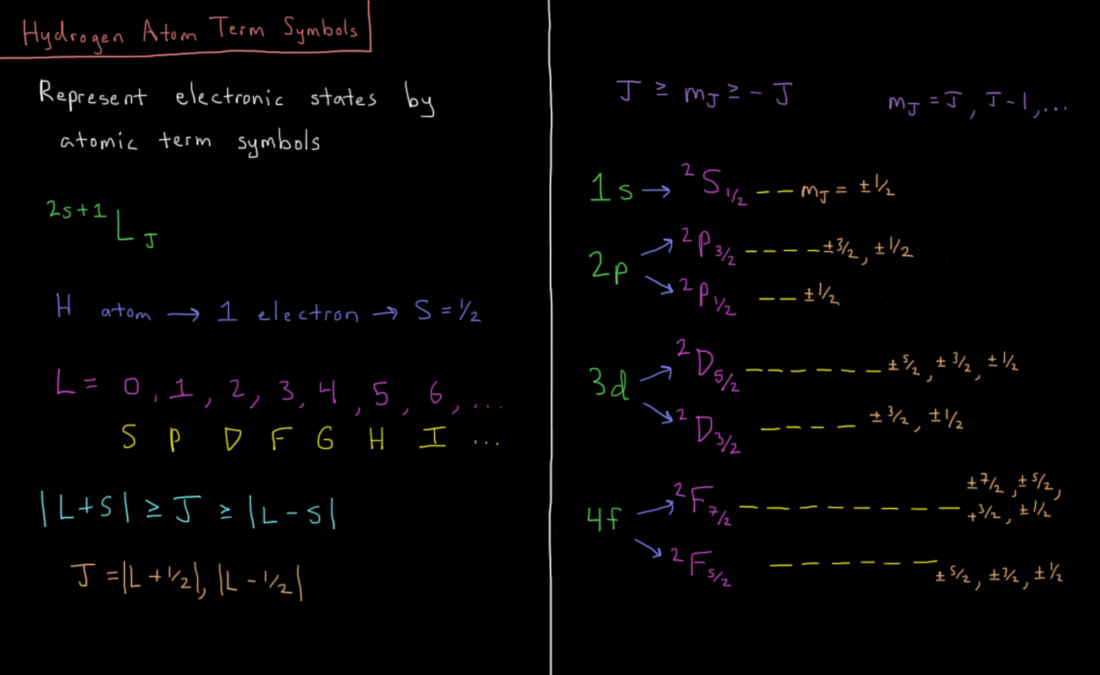 Hydrogen Atom Term Symbols
Represent electronic states by
atomic term symbols
²ˢ⁺¹L_J
H atom → 1 electron → S = ½
L = 0, 1, 2, 3, 4, 5, 6, ...
S P D F G H I ...
|L+S| ≥ J ≥ |L-S|
J = |L + ½|, |L - ½|
J ≥ m_J ≥ - J
m_J = J, J-1, ...
1s → ²S_1/2 -- m_J = ±1/2
2p
²P_3/2 ---- ±3/2, ±1/2
²P_1/2 -- ±1/2
3d
²D_5/2 ------ ±5/2, ±3/2, ±1/2
²D_3/2 ---- ±3/2, ±1/2
4f
²F_7/2 -------- ±7/2, ±5/2,
+3/2, ±1/2
²F_5/2 ------ ±5/2, ±3/2, ±1/2